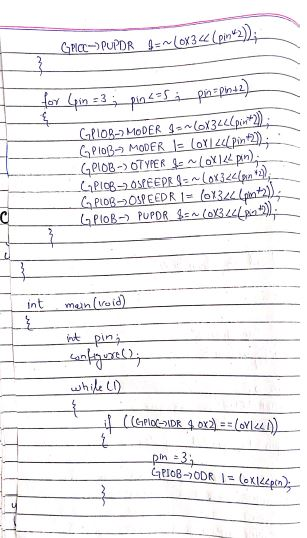 GPIOC→PUPDR &=~(0x3<<(pin*2));
}
for (pin=3 ; pin<=5 ; pin=pin+2)
{
GPIOB→MODER &=~(0x3<<(pin*2));
GPIOB→MODER |= (0x1<<(pin*2));
GPIOB→OTYPER &=~(0x1<<pin);
GPIOB→OSPEEDR &=~(0x3<<(pin*2));
GPIOB→OSPEEDR |= (0x3<<(pin*2));
GPIOB→ PUPDR &=~(0x3<<(pin*2));
}
}
int main(void)
{
int pin;
configure();
while(1)
{
if ((GPIOC→IDR & 0x2)==(0x1<<1))
{
pin=3;
GPIOB→ODR |= (0x1<<pin);
}